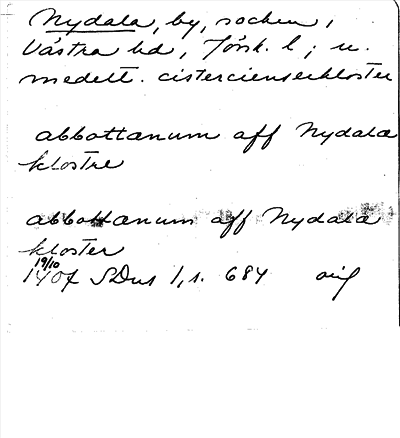 Nydala, by, socken,
Västra hd, Jönk. l; m.
medelt. cistercienserkloster
abbottanum aff Nydala
klostre
abbottanum aff Nydala
kloster
19/10
1407 SDns 1, s. 684 orig